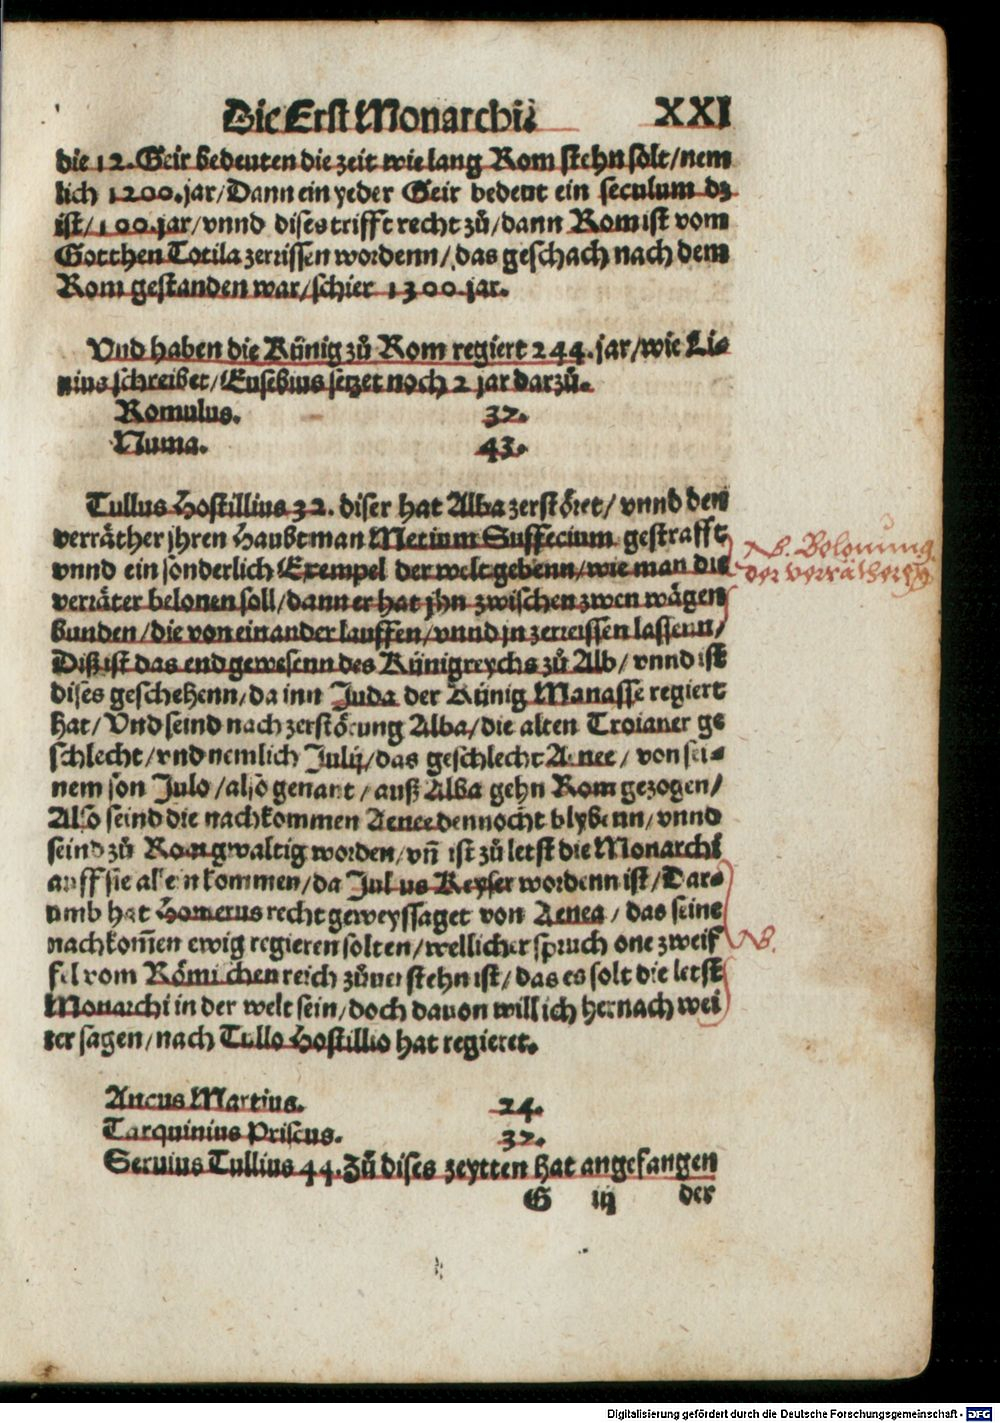 Die Erst Monarchi. XXI
die 12. Geir bedeuten die zeit wie lang Rom stehn sölt/nem
lich 1200. jar/Dann ein yeder Geir bedeut ein seculum dz
ist/100. jar/vnnd dises trifft recht zů/dann Rom ist vom
Gotthen Totila zerrissen wordenn/das geschach nach dem
Rom gestanden war/schier 1300 jar.
Vnd haben die Künig zů Rom regiert 244. jar/wie Li-
uius schreibet/Eusebius setzet noch 2 jar darzů.
Romulus. 37.
Numa. 43.
Tullus Hostillius 32. diser hat Alba zerstöret/vnnd den
verräther jhren Haubtman Metium Suffecium gestrafft
vnnd ein sonderlich Exempel der welt gebenn/wie man die
verräter belonen soll/dann er hat jhn zwischen zwen wägen
bunden/die von einander lauffen/vnnd jn zerreissen lassenn/
Diß ist das end gewesenn des Künigreychs zů Alb/vnnd ist
dises geschehenn/da inn Juda der Künig Manasse regiert
hat/Vnd seind nach zerstörung Alba/die alten Troianer ge
schlecht/vnd nemlich Julij/das geschlecht Aenee/von sei-
nem son Julo/also genant/auß Alba gehn Rom gezogen/
Also seind die nachkommen Aenee dennocht blybenn/vnnd
seind zů Rom gwaltig worden/vñ ist zů letst die Monarchi
auff sie allein kommen/da Julius Keyser wordenn ist/Dar-
umb hat Homerus recht geweyssaget von Aenea/das seine
nachkom̃en ewig regieren solten/wellicher spruch one zweif
fel vom Römischen reich zůuerstehn ist/das es solt die letst
Monarchi in der welt sein/doch dauon will ich hernach wei
ter sagen/nach Tullo Hostillio hat regieret.
Ancus Martius. 24.
Tarquinius Priscus. 37.
Seruius Tullius 44. Zů dises zeytten hat angefangen
G iij der
NB. Belonung
der verrätherey
NB.
Digitalisierung gefördert durch die Deutsche Forschungsgemeinschaft - DFG